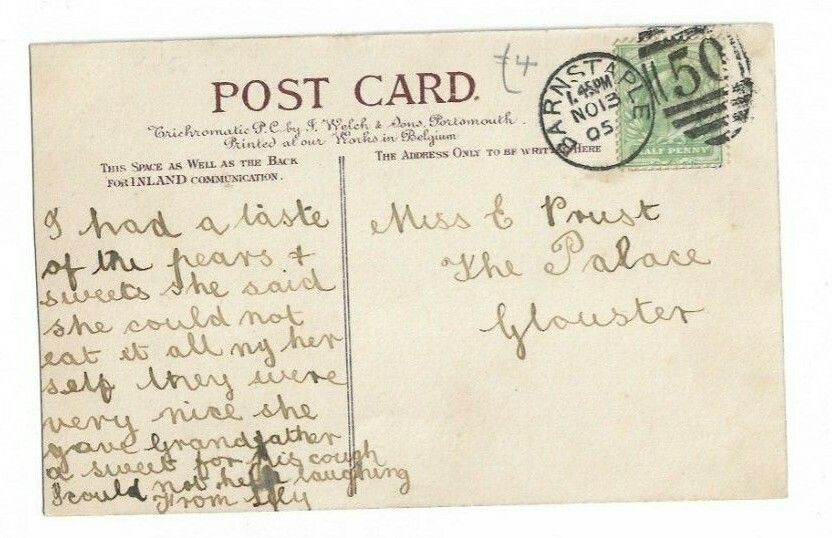 £4
POST CARD.
Trichromatic P.C. by F. Welch & Sons, Portsmouth.
Printed at our Works in Belgium
THIS SPACE AS WELL AS THE BACK
FOR INLAND COMMUNICATION.
THE ADDRESS ONLY TO BE WRITTEN HERE
BARNSTAPLE
1.45PM
NO 13
05
150
HALF PENNY
I had a taste
of the pears +
sweets she said
she could not
eat et all ny her
self they were
very nice she
gave Grandfather
a sweet for his cough
I could not help laughing
From Lily
Miss E Prust
The Palace
Glouster